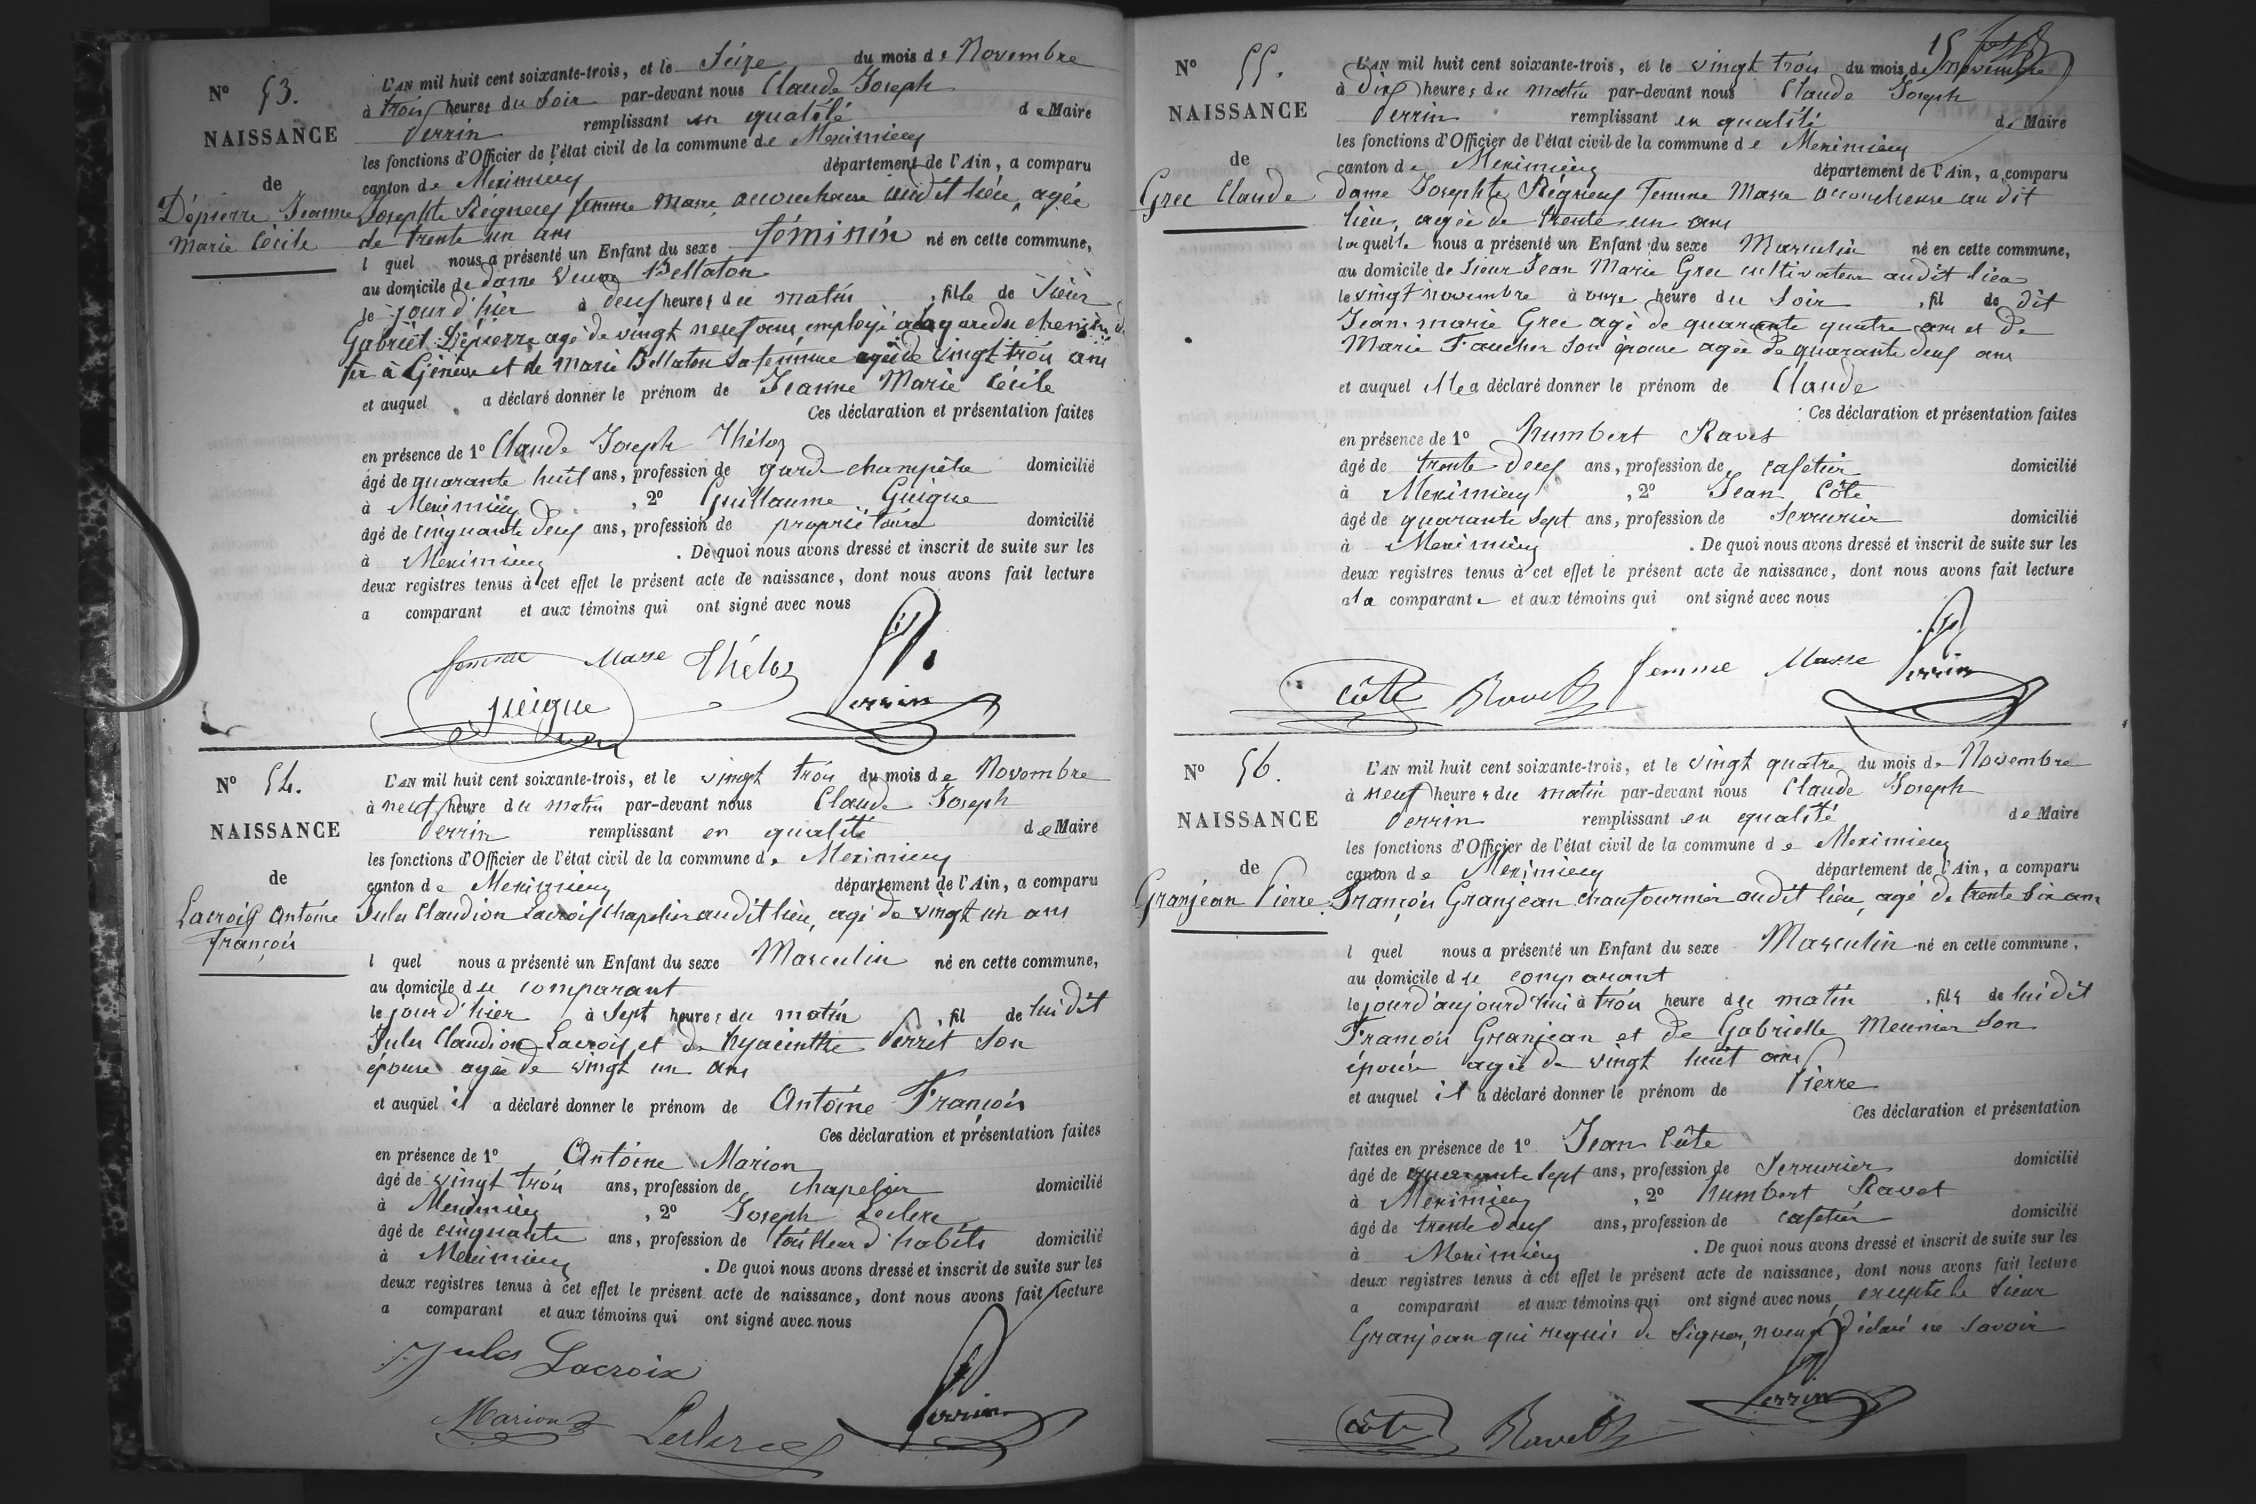 N° 53.
NAISSANCE
de
Dépierre Jeanne
Marie Cécile
L'AN mil huit cent soixante-trois, et le Seize du mois de Novembre
à trois heures du Soir par-devant nous Claude Joseph
Perrin remplissant en qualité de Maire
les fonctions d'Officier de l'état civil de la commune de Meximieux
canton de Meximieux département de l'Ain, a comparu
Josephte Régneux femme Masse accoucheuse audit lieu, agée
de trente un ans
l quel nous a présenté un Enfant du sexe féminin né en cette commune,
au domicile de dame Veuve Bellaton
le jour d'hier à deux heures du matin, fille de Sieur
Gabriel Dépierre agé de vingt neuf ans, employé à la gare du chemin de
fer à Genève et de Marie Bellaton sa femme agée de vingt trois ans
et auquel a déclaré donner le prénom de Jeanne Marie Cécile
Ces déclaration et présentation faites
en présence de 1° Claude Joseph Théloz
âgé de quarante huit ans, profession de garde champêtre domicilié
à Meximieux, 2° Guillaume Guigue
âgé de cinquante deux ans, profession de propriétaire domicilié
à Meximieux. De quoi nous avons dressé et inscrit de suite sur les
deux registres tenus à cet effet le présent acte de naissance, dont nous avons fait lecture
a comparant et aux témoins qui ont signé avec nous
femme Masse Théloz
guigue Perrin
N° 54.
NAISSANCE
de
Lacroix Antoine
François
L'AN mil huit cent soixante-trois, et le vingt trois du mois de Novembre
à neuf heure du matin par-devant nous Claude Joseph
Perrin remplissant en qualité de Maire
les fonctions d'Officier de l'état civil de la commune de Meximieux
canton de Meximieux département de l'Ain, a comparu
Jules Claudion Lacroix chapelier audit lieu, agé de vingt un ans
l quel nous a présenté un Enfant du sexe Masculin né en cette commune,
au domicile du comparant
le jour d'hier à Sept heures du matin, fil de lui dit
Jules Claudion Lacroix et de hyacinthe Perret son
épouse agée de vingt un ans
et auquel il a déclaré donner le prénom de Antoine François
Ces déclaration et présentation faites
en présence de 1° Antoine Marion
âgé de vingt trois ans, profession de chapelier domicilié
à Meximieux, 2° Joseph Leclerc
âgé de cinquante ans, profession de tailleur d'habits domicilié
à Meximieux. De quoi nous avons dressé et inscrit de suite sur les
deux registres tenus à cet effet le présent acte de naissance, dont nous avons fait lecture
a comparant et aux témoins qui ont signé avec nous
Jules Lacroix
Marion Leclerc Perrin
15
N° 55.
NAISSANCE
de
Grec Claude
L'AN mil huit cent soixante-trois, et le vingt trois du mois de Novembre
à dix heures du matin par-devant nous Claude Joseph
Perrin remplissant en qualité de Maire
les fonctions d'Officier de l'état civil de la commune de Meximieux
canton de Meximieux département de l'Ain, a comparu
dame Josephte Régneux femme Masse accoucheuse au dit
lieu, agée de trente un ans
laquelle nous a présenté un Enfant du sexe Masculin né en cette commune,
au domicile de Sieur Jean Marie Grec cultivateur audit lieu
le vingt novembre à onze heure du Soir, fil de dit
Jean marie Grec agé de quarante quatre ans et de
Marie Faucher son épouse agée de quarante deux ans
et auquel elle a déclaré donner le prénom de Claude
Ces déclaration et présentation faites
en présence de 1° humbert Ravet
âgé de trente deux ans, profession de cafetier domicilié
à Meximieux, 2° Jean Côte
âgé de quarante sept ans, profession de Serrurier domicilié
à Meximieux. De quoi nous avons dressé et inscrit de suite sur les
deux registres tenus à cet effet le présent acte de naissance, dont nous avons fait lecture
a la comparante et aux témoins qui ont signé avec nous
côte Ravet femme Masse Perrin
N° 56.
NAISSANCE
de
Granjean Pierre
L'AN mil huit cent soixante-trois, et le vingt quatre du mois de Novembre
à neuf heures du matin par-devant nous Claude Joseph
Perrin remplissant en qualité de Maire
les fonctions d'Officier de l'état civil de la commune de Meximieux
canton de Meximieux département de l'Ain, a comparu
François Granjean chaufournier audit lieu, agé de trente six ans
l quel nous a présenté un Enfant du sexe Masculin né en cette commune,
au domicile du comparant
le jourd'aujourd'hui à trois heure du matin, fils de lui dit
François Granjean et de Gabrielle Meunier son
épouse agée de vingt huit ans
et auquel il a déclaré donner le prénom de Pierre
Ces déclaration et présentation
faites en présence de 1° Jean Côte
âgé de quarante sept ans, profession de Serrurier domicilié
à Meximieux, 2° humbert Ravet
âgé de trente deux ans, profession de cafetier domicilié
à Meximieux. De quoi nous avons dressé et inscrit de suite sur les
deux registres tenus à cet effet le présent acte de naissance, dont nous avons fait lecture
a comparant et aux témoins qui ont signé avec nous, excepté le Sieur
Granjean qui requis de signer, nous a déclaré ne savoir
côte Ravet Perrin